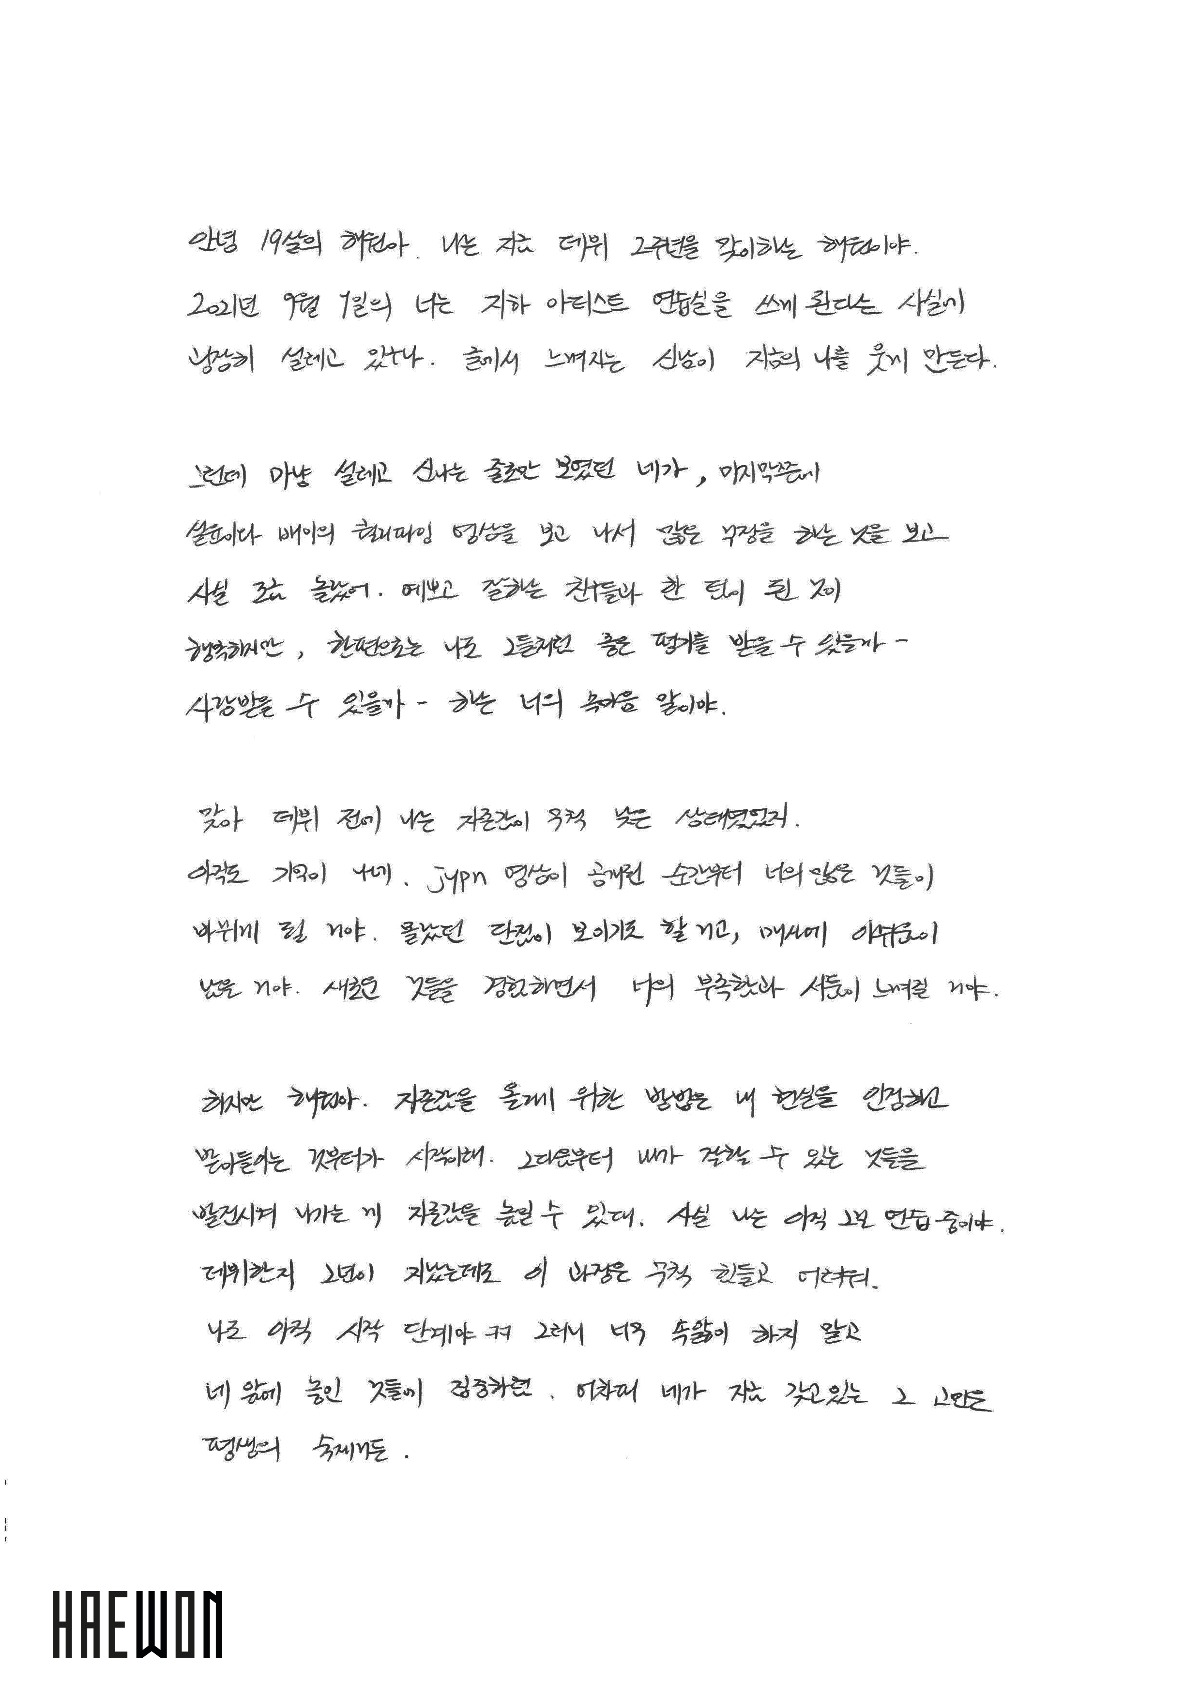 안녕 19살의 해원아. 나는 지금 데뷔 2주년을 맞이하는 해원이야.
2021년 9월 1일의 너는 지하 아티스트 연습실을 쓰게 된다는 사실에
굉장히 설레고 있구나. 글에서 느껴지는 신남이 지금의 나를 웃게 만든다.
그런데 마냥 설레고 신나는 줄로만 보였던 네가, 마지막쯤에
설윤이다 배이의 퀄리파잉 영상을 보고 나서 많은 걱정을 하는 것을 보고
사실 조금 놀랐어. 예쁘고 잘하는 친구들과 한 팀이 된 것이
행복하지만, 한편으로는 나도 그들처럼 좋은 평가를 받을 수 있을까 -
사랑받을 수 있을까 - 하는 너의 속마음 말이야.
맞아 데뷔 전에 나는 자존감이 무척 낮은 상태였었지.
아직도 기억이 나네. jypn 영상이 공개된 순간부터 너의 많은 것들이
바뀌게 될 거야. 몰랐던 단점이 보이기도 할 거고, 매사에 아쉬움이
남을 거야. 새로운 것들을 경험하면서 너의 부족함과 서툶이 느껴질 거야.
하지만 해원아. 자존감을 올리기 위한 방법은 내 현실을 인정하고
받아들이는 것부터가 시작이래. 그다음부터 내가 잘할 수 있는 것들을
발전시켜 나가는 게 자존감을 높일 수 있대. 사실 나는 아직 그걸 연습 중이야.
데뷔한지 2년이 지났는데도 이 과정은 무척 힘들고 어려워.
나도 아직 시작 단계야 ㅋㅋ 그러니 너무 속앓이 하지 말고
네 앞에 놓인 것들에 집중하렴. 어차피 네가 지금 갖고있는 그 고민은
평생의 숙제거든.
HAEWON